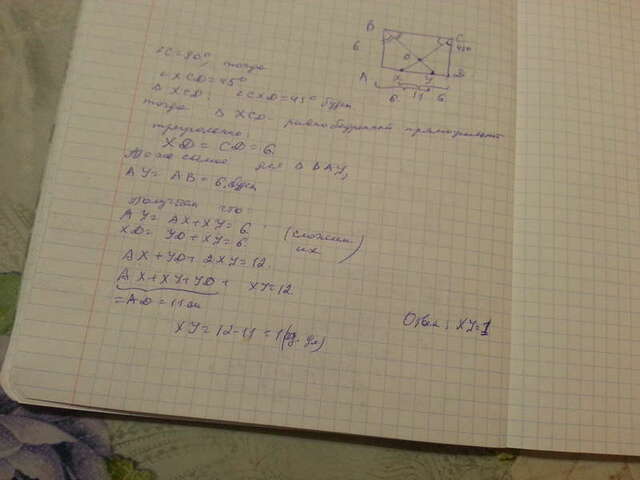 B
C
6
45°
O
A
X
Y
D
6
11
6
∠C=90°, тогда
∠XCD=45°
Δ XCD: ∠CXD=45° будет
тогда Δ XCD равнобедренный прямоугольный
треугольник:
XD = CD = 6.
То же самое для Δ BAY,
AY = AB = 6, будет
Получаем что:
AY = AX+XY = 6.
XD = YD+XY = 6.
(сложим их)
AX + YD + 2XY = 12.
AX + XY + YD + XY = 12
= AD = 11 см
XY = 12 - 11 = 1
Ответ: XY=1